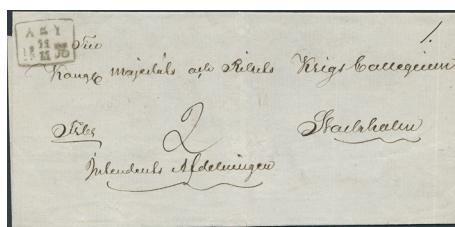 1.
Till
Kongl Majestäts och Rikets Krigs Collegium
2 Stockholm
Intendents Afdelningen